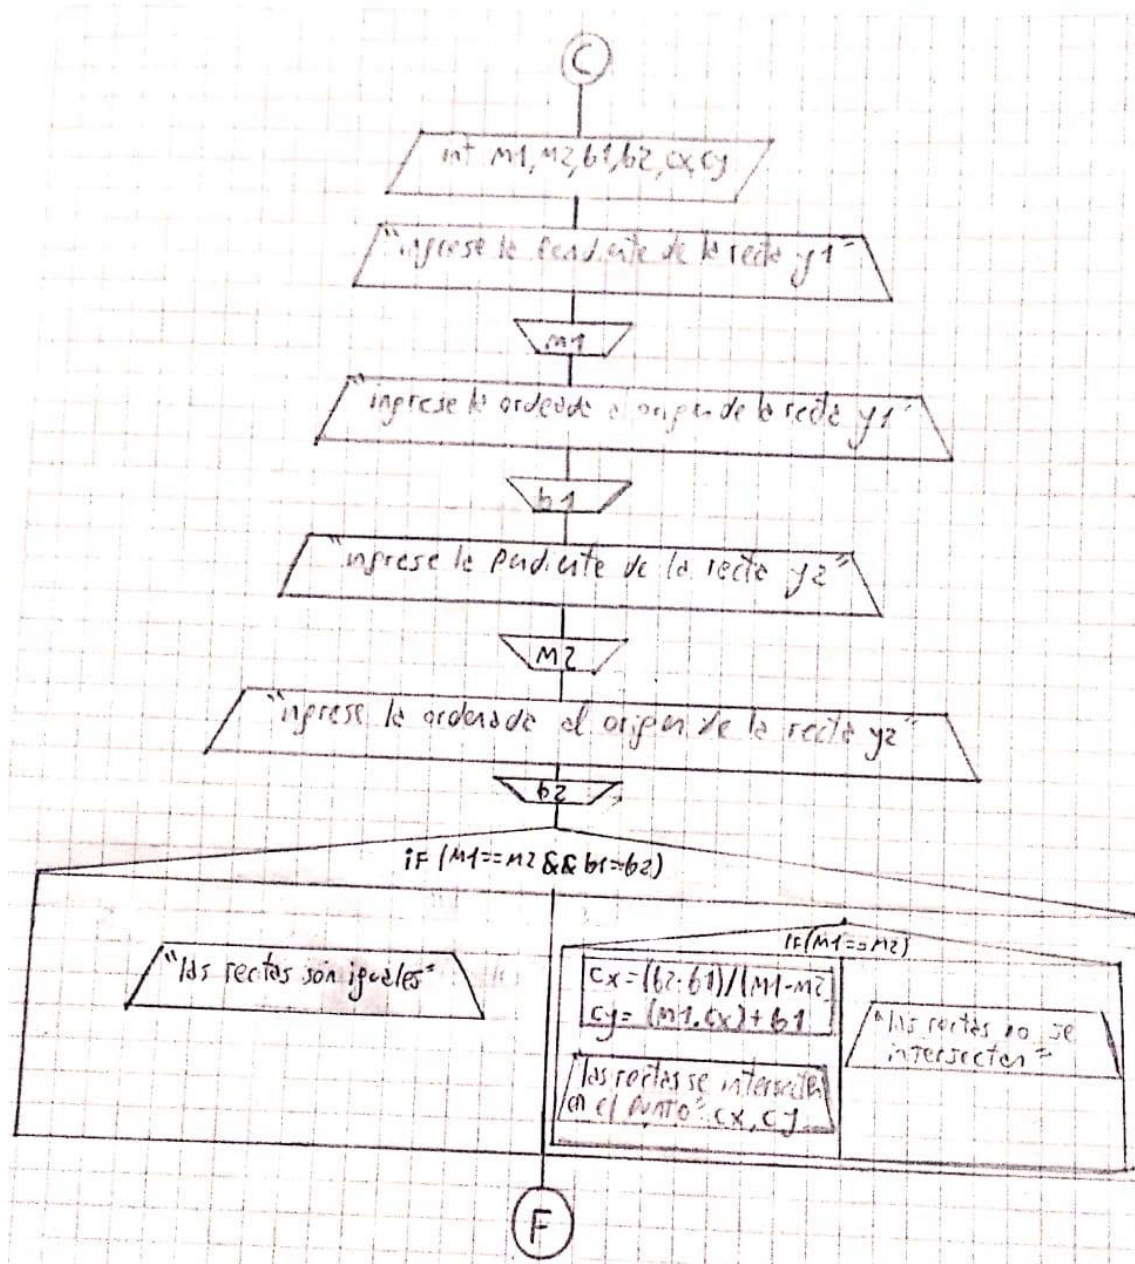 C
int m1, m2, b1, b2, cx, cy
"ingrese la pendiente de la recta y1"
m1
"ingrese la ordeada al origen de la recta y1"
b1
"ingrese la pendiente de la recta y2"
M2
"ingrese la ordenada al origen de la recta y2"
b2
if (M1==M2 && b1=b2)
"las rectas son iguales"
if(M1==M2)
cx=(b2-b1)/(M1-M2
cy=(m1.cx)+b1
"las rectas se intersectan
en el punto" cx, cy
"las rectas no se
intersectan"
F